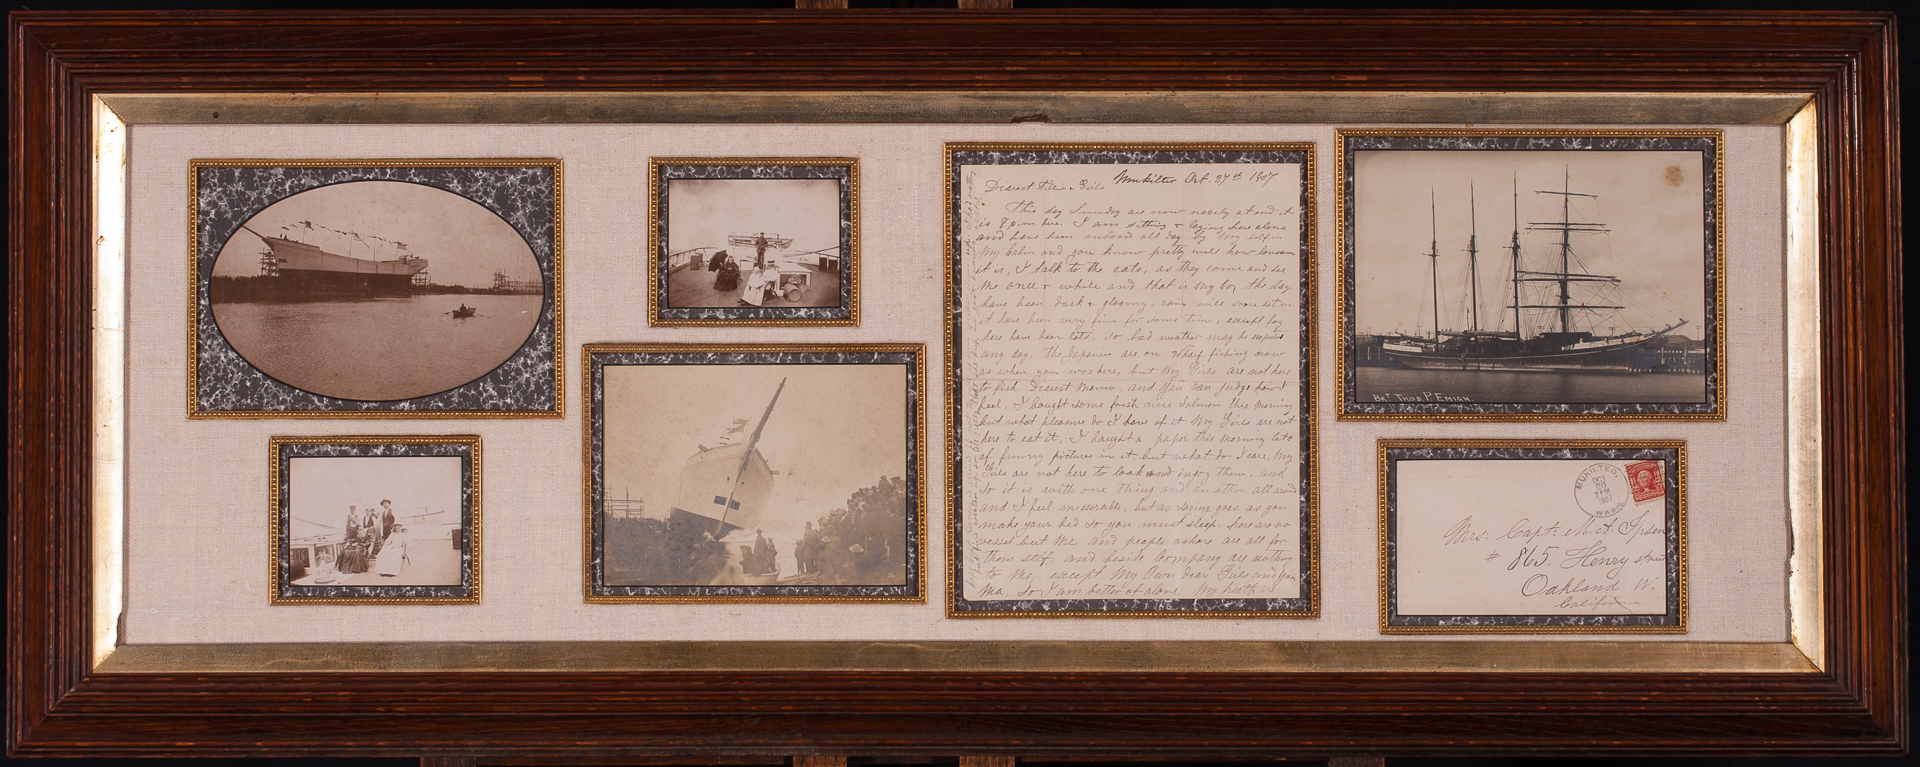 Mukilteo Oct. 27th 1907
Dearest & Girls
This day Sunday are now nearly at end it
is 8 p.m. here. I am sitting & here alone
and have been onboard all day by My self in
My Cabin and you know pretty well how
it is, I talk to the cats, as they come and see
me once & while and that is My boy the day
have been dark & gloomy, rain will soon set in
it have been very fine for some time, except fog
here have been lots. So bad weather may be
any day. the are on wharf fishing now
as when you was here, but My Girls are not here
to fish Dearest Mama, and you can judge how I
feel. I bought some fresh nice Salmon this morning
but what pleasure do I have of it My Girls are not
here to eat it, I bought a paper this morning lots
of funny pictures in it but what do I care, My
Girls are not here to look and injoy them. and
so it is with one thing and an other all around
and I feel misserable, but as saying goes as you
make your bed so you must sleep. here are no
vessel but me and people ashore are all for
them self, and beside Company are nothing
to Me, except My Own dear Girls and you
Ma, so I am better of alone. My
BKT. THOS. P. EMIGH.
MUKILTEO,
OCT
28
2 PM
1907
WASH.
Mrs: Capt. M. A. Ipsen
# 865. Henry street
Oakland W.
California